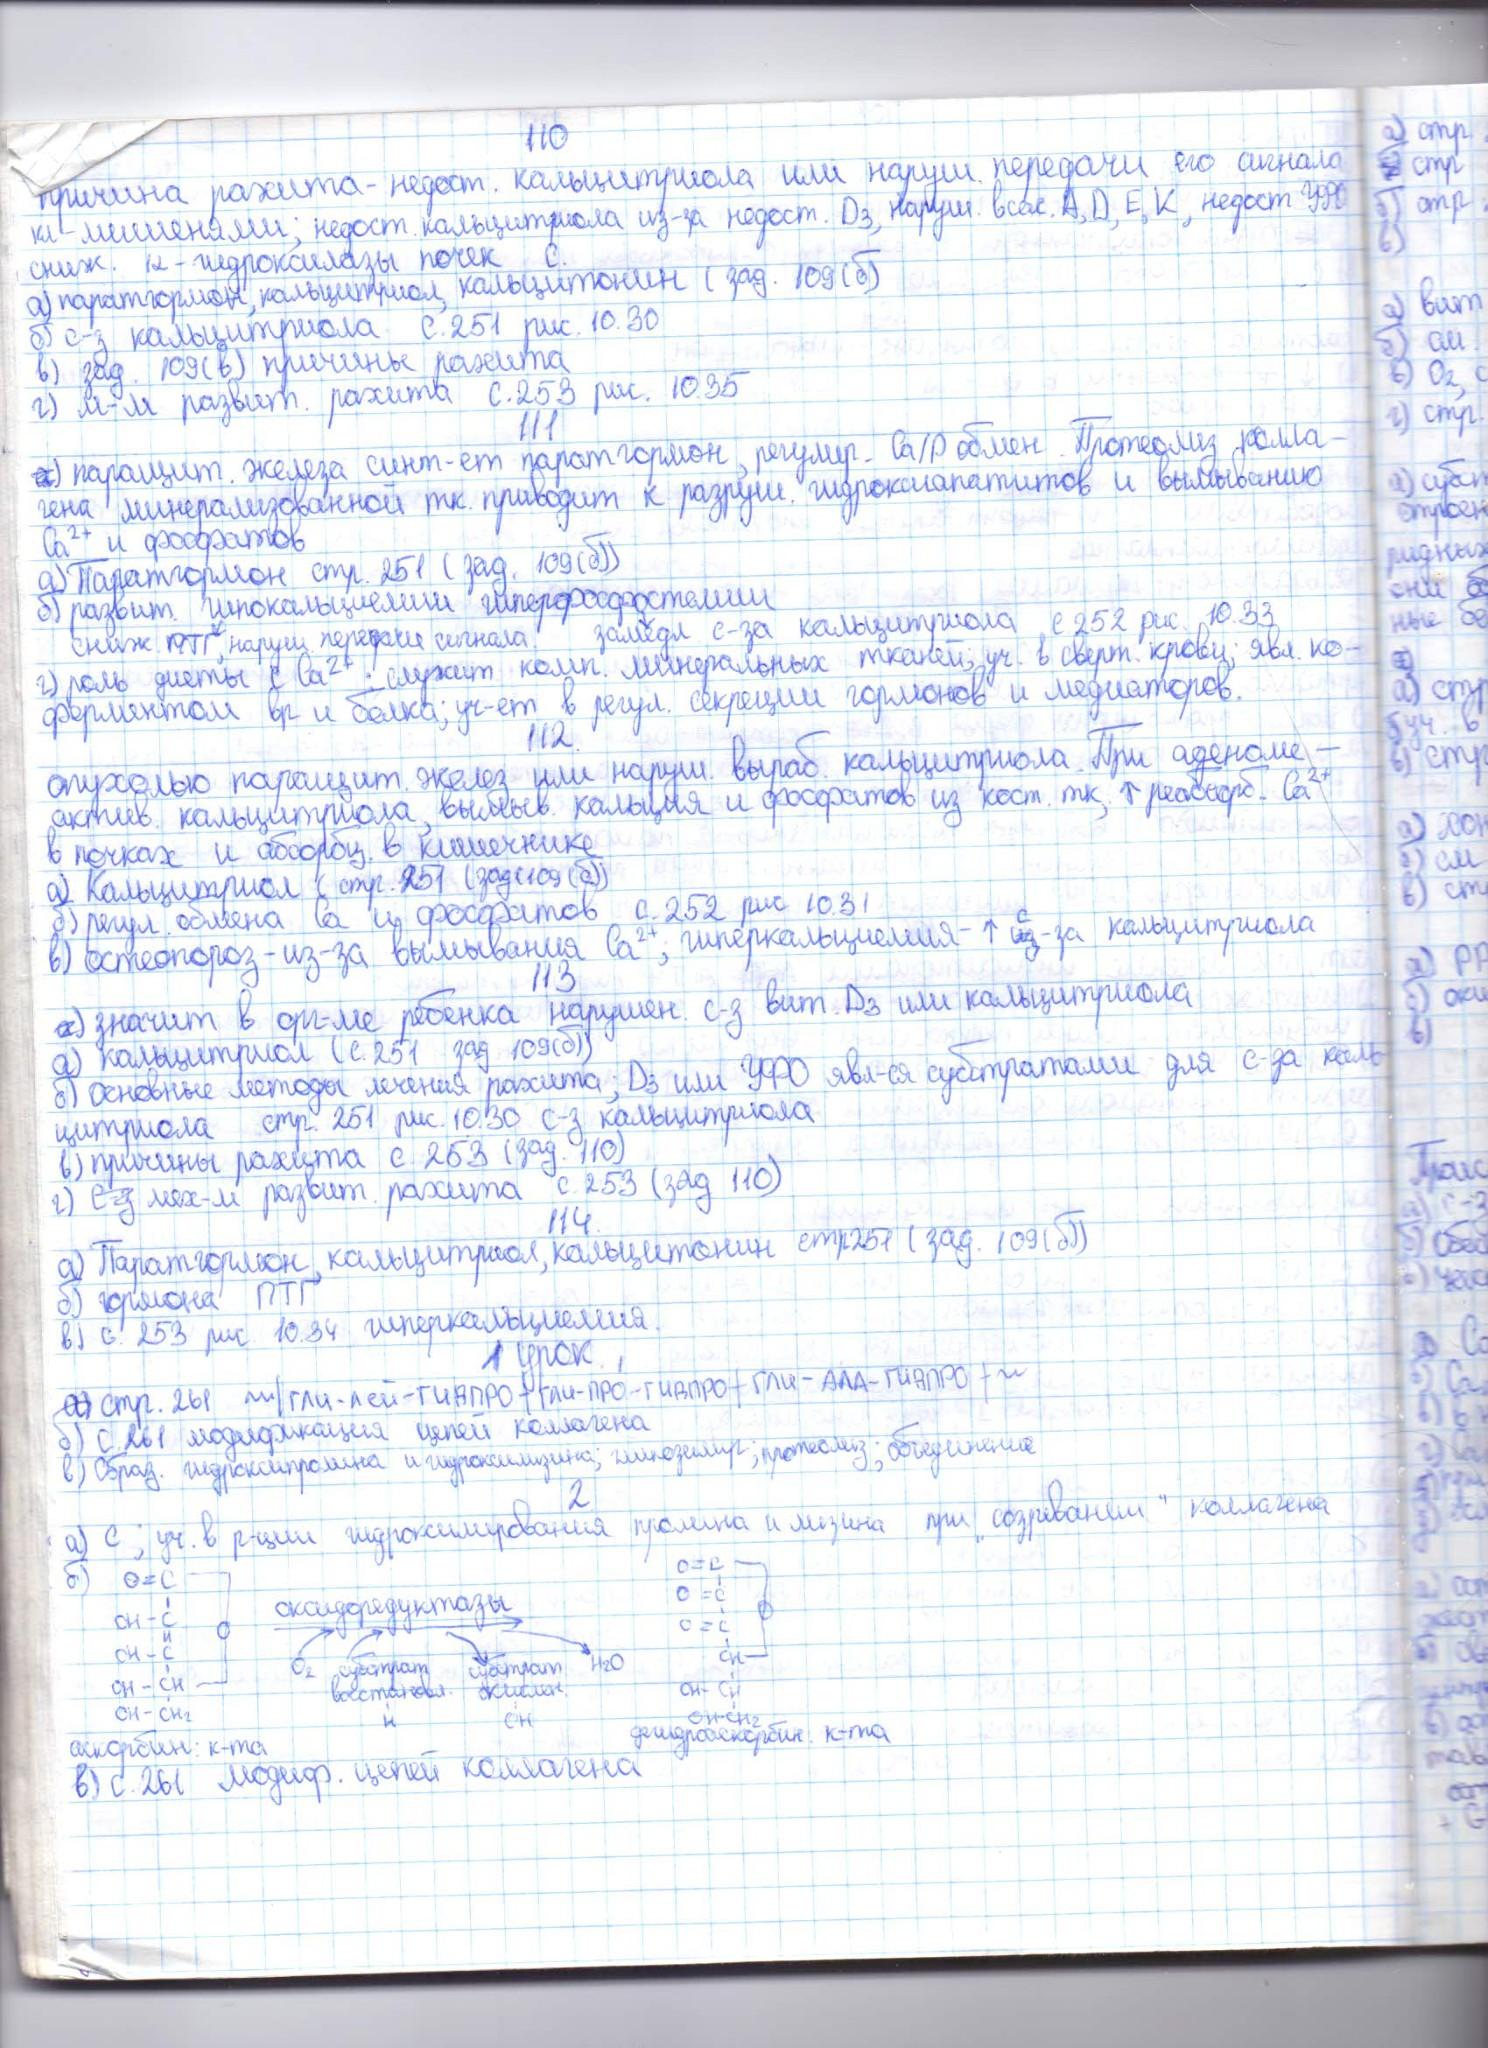 110
причина рахита - недост. кальцитриола или наруш. передачи его сигнала
кл-мишенями; недост. кальцитриола из-за недост. D3, наруш. всас. A, D, E, K, недост УФО
сниж. 1α-гидроксилазы почек с.
а) паратгормон, кальцитриол, кальцитонин (зад. 109(б)
б) с-з кальцитриола с.251 рис. 10.30
в) зад. 109(в) причины рахита
г) м-м развит. рахита с.253 рис. 10.35
111
паращит. железа синт-ет паратгормон, регулир. Ca/P обмен. Протеолиз колла-
гена минерализованной тк. приводит к разруш. гидроксиапатитов и вымыванию
Ca2+ и фосфатов
а) Паратгормон стр. 251 (зад. 109(б))
б) развит. гипокальциемии гиперфосфостемии
сниж. ПТГ, наруш. передачи сигнала. замедл с-за кальцитриола с 252 рис. 10.33
г) роль диеты с Ca2+: служит комп. минеральных тканей; уч. в сверт. крови; явл. ко-
ферментом и белка; уч-ет в регул. секреции гормонов и медиаторов.
112.
опухолью паращит. желез или наруш. выраб. кальцитриола. При аденоме -
актив. кальцитриола, вымыв. кальция и фосфатов из кост. тк, ↑ реабсорб. Ca2+
в почках и абсорбц. в кишечнике
а) Кальцитриол (стр. 251 (зад 109(б))
б) регул. обмена Ca и фосфатов с.252 рис 10.31
в) остеопороз - из-за вымывания Ca2+; гиперкальциемия - ↑ с-за кальцитриола
113
значит в орг-ме ребенка нарушен. с-з вит. D3 или кальцитриола
а) кальцитриол (с.251 зад 109(б))
б) основные методы лечения рахита; D3 или УФО явл-ся субстратами для с-за каль-
цитриола стр. 251 рис. 10.30 с-з кальцитриола
в) причины рахита с. 253 (зад. 110)
г) мех-м развит. рахита с.253 (зад 110)
114.
а) Паратгормон, кальцитриол, кальцитонин стр251 (зад. 109(б))
б) гормона ПТГ
в) с. 253 рис. 10.34 гиперкальциемия.
1 урок.
стр. 261 ~|ГЛИ-ЛЕЙ-ГИВПРО+ГЛИ-ПРО-ГИВПРО+ГЛИ-АЛА-ГИВПРО+~
б) с 261 модификация цепей коллагена
в) Образ. гидроксипролина и гидроксилизина; гликозилир; протеолиз; объединение
2
а) С; уч. в р-ции гидроксилирования пролина и лизина при „созревании" коллагена
б)
O=C
OH-C
OH-C
OH-CH
OH-CH2
O
аскорбин. к-та
оксидоредуктазы
O2 субстрат восстановл. H
субстрат окислен. OH
H2O
O=C
O=C
O=C
CH
OH-CH
OH-CH2
O
дегидроаскорбин. к-та
в) с. 261 модиф. цепей коллагена